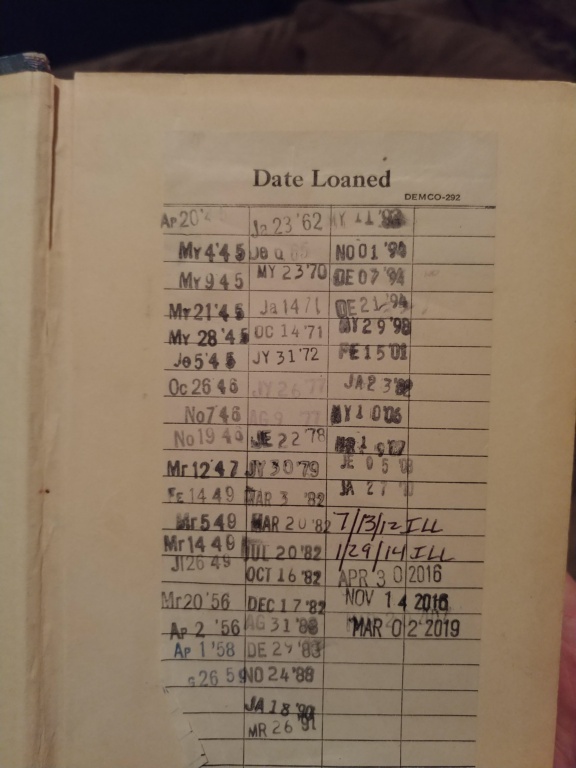 Date Loaned
DEMCO-292
Ap 20
My 4 '45
My 9 45
My 21 '45
My 28 '45
Je 5 '45
Oc 26 46
No 7 46
No 19 46
Mr 12 '47
Fe 14 49
Mr 5 49
Mr 14 49
Jl 26 49
Mr 20 '56
Ap 2 '56
Ap 1 '58
26 59
Ja 23 '62
MY 23 '70
Ja 14 71
OC 14 '71
JY 31 '72
JY 26 77
AG 9 77
JE 22 '78
JY 30 '79
MAR 3 '82
MAR 20 '82
JUL 20 '82
OCT 16 '82
DEC 17 '82
AG 31 '83
DE 29 '83
NO 24 '88
JA 18 '90
MR 26 '91
MY 11
NO 01 '94
DE 07 '94
DE 21 '94
MY 29 '98
FE 15 '01
JA 23
MY 10 '06
JE 05
JA 27
7/13/12 ILL
1/29/14 ILL
APR 30 2016
NOV 14 2016
MAR 02 2019